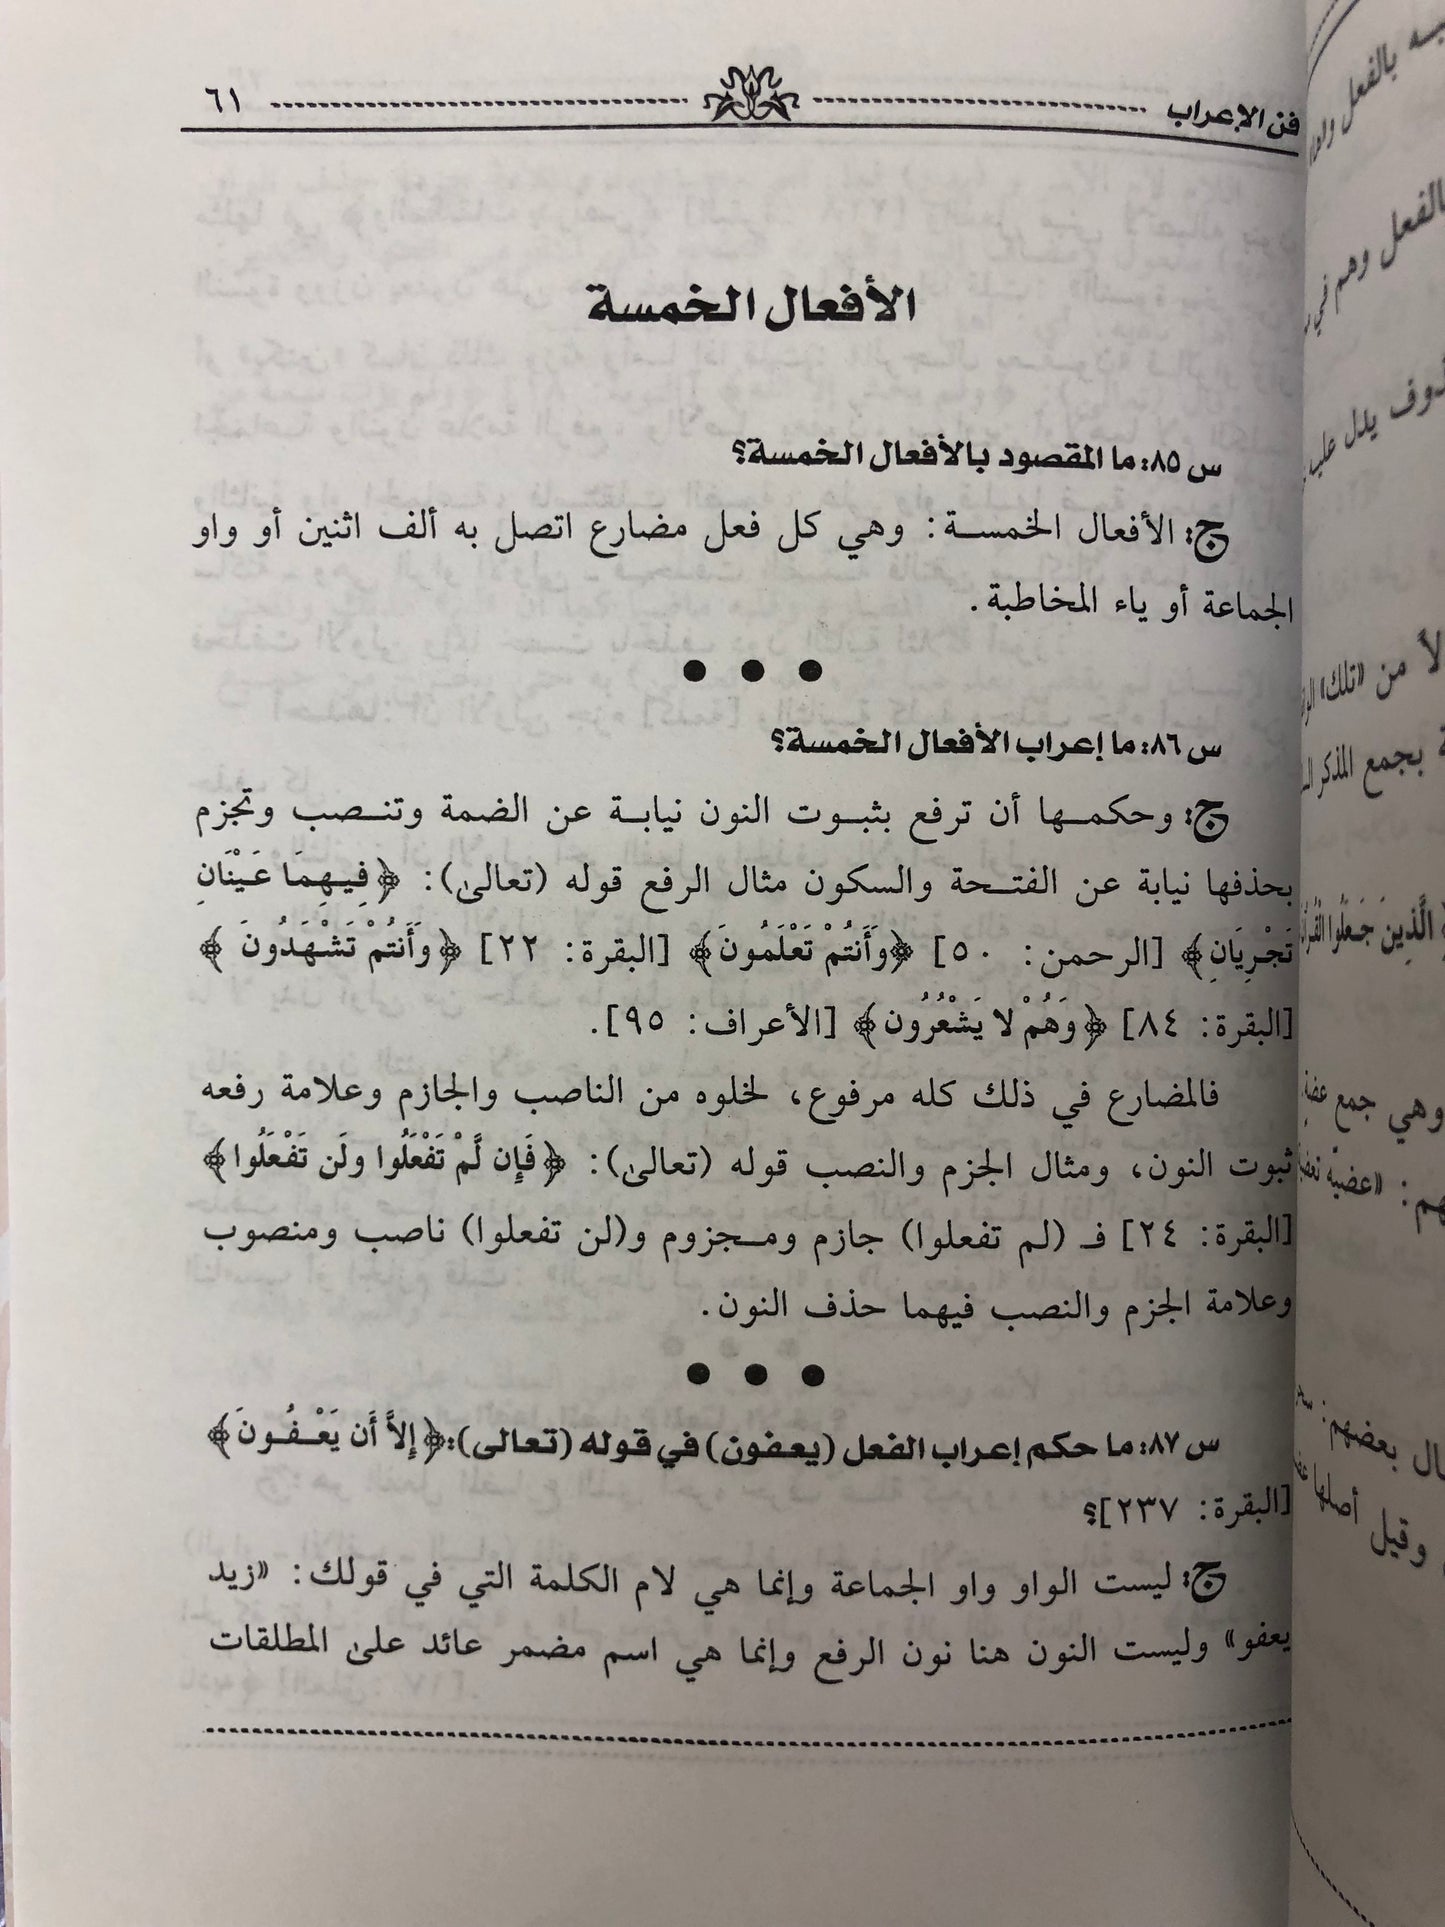 فن الإعراب ٦١
الأفعال الخمسة
س ٨٥: ما المقصود بالأفعال الخمسة؟
ج: الأفعال الخمسة: وهي كل فعل مضارع اتصل به ألف اثنين أو واو
الجماعة أو ياء المخاطبة.
س ٨٦: ما إعراب الأفعال الخمسة؟
ج: وحكمها أن ترفع بثبوت النون نيابة عن الضمة وتنصب وتجزم
بحذفها نيابة عن الفتحة والسكون مثال الرفع قوله (تعالى): ﴿فِيهِمَا عَيْنَانِ
تَجْرِيَانِ﴾ [الرحمن: ٥٠] ﴿وَأَنتُمْ تَعْلَمُونَ﴾ [البقرة: ٢٢] ﴿وَأَنتُمْ تَشْهَدُونَ﴾
[البقرة: ٨٤] ﴿وَهُمْ لا يَشْعُرُون﴾ [الأعراف: ٩٥].
فالمضارع في ذلك كله مرفوع، لخلوه من الناصب والجازم وعلامة رفعه
ثبوت النون، ومثال الجزم والنصب قوله (تعالى): ﴿فَإِن لَّمْ تَفْعَلُوا ولَن تَفْعَلُوا﴾
[البقرة: ٢٤] فـ (لم تفعلوا) جازم ومجزوم و(لن تفعلوا) ناصب ومنصوب
وعلامة الجزم والنصب فيهما حذف النون.
س ٨٧: ما حكم إعراب الفعل (يعفون) في قوله (تعالى): ﴿إِلاَّ أَن يَعْفُونَ﴾
[البقرة: ٢٣٧]؟
ج: ليست الواو واو الجماعة وإنما هي لام الكلمة التي في قولك: «زيد
يعفو» وليست النون هنا نون الرفع وإنما هي اسم مضمر عائد على المطلقات
به بالفعل
بالفعل وهم في
يدل
من «تلك»
بجمع المذكر
الَّذِينَ جَعَلُوا
وهي جمع عضة
هم: «عضية
بعضهم:
وقيل أصلها